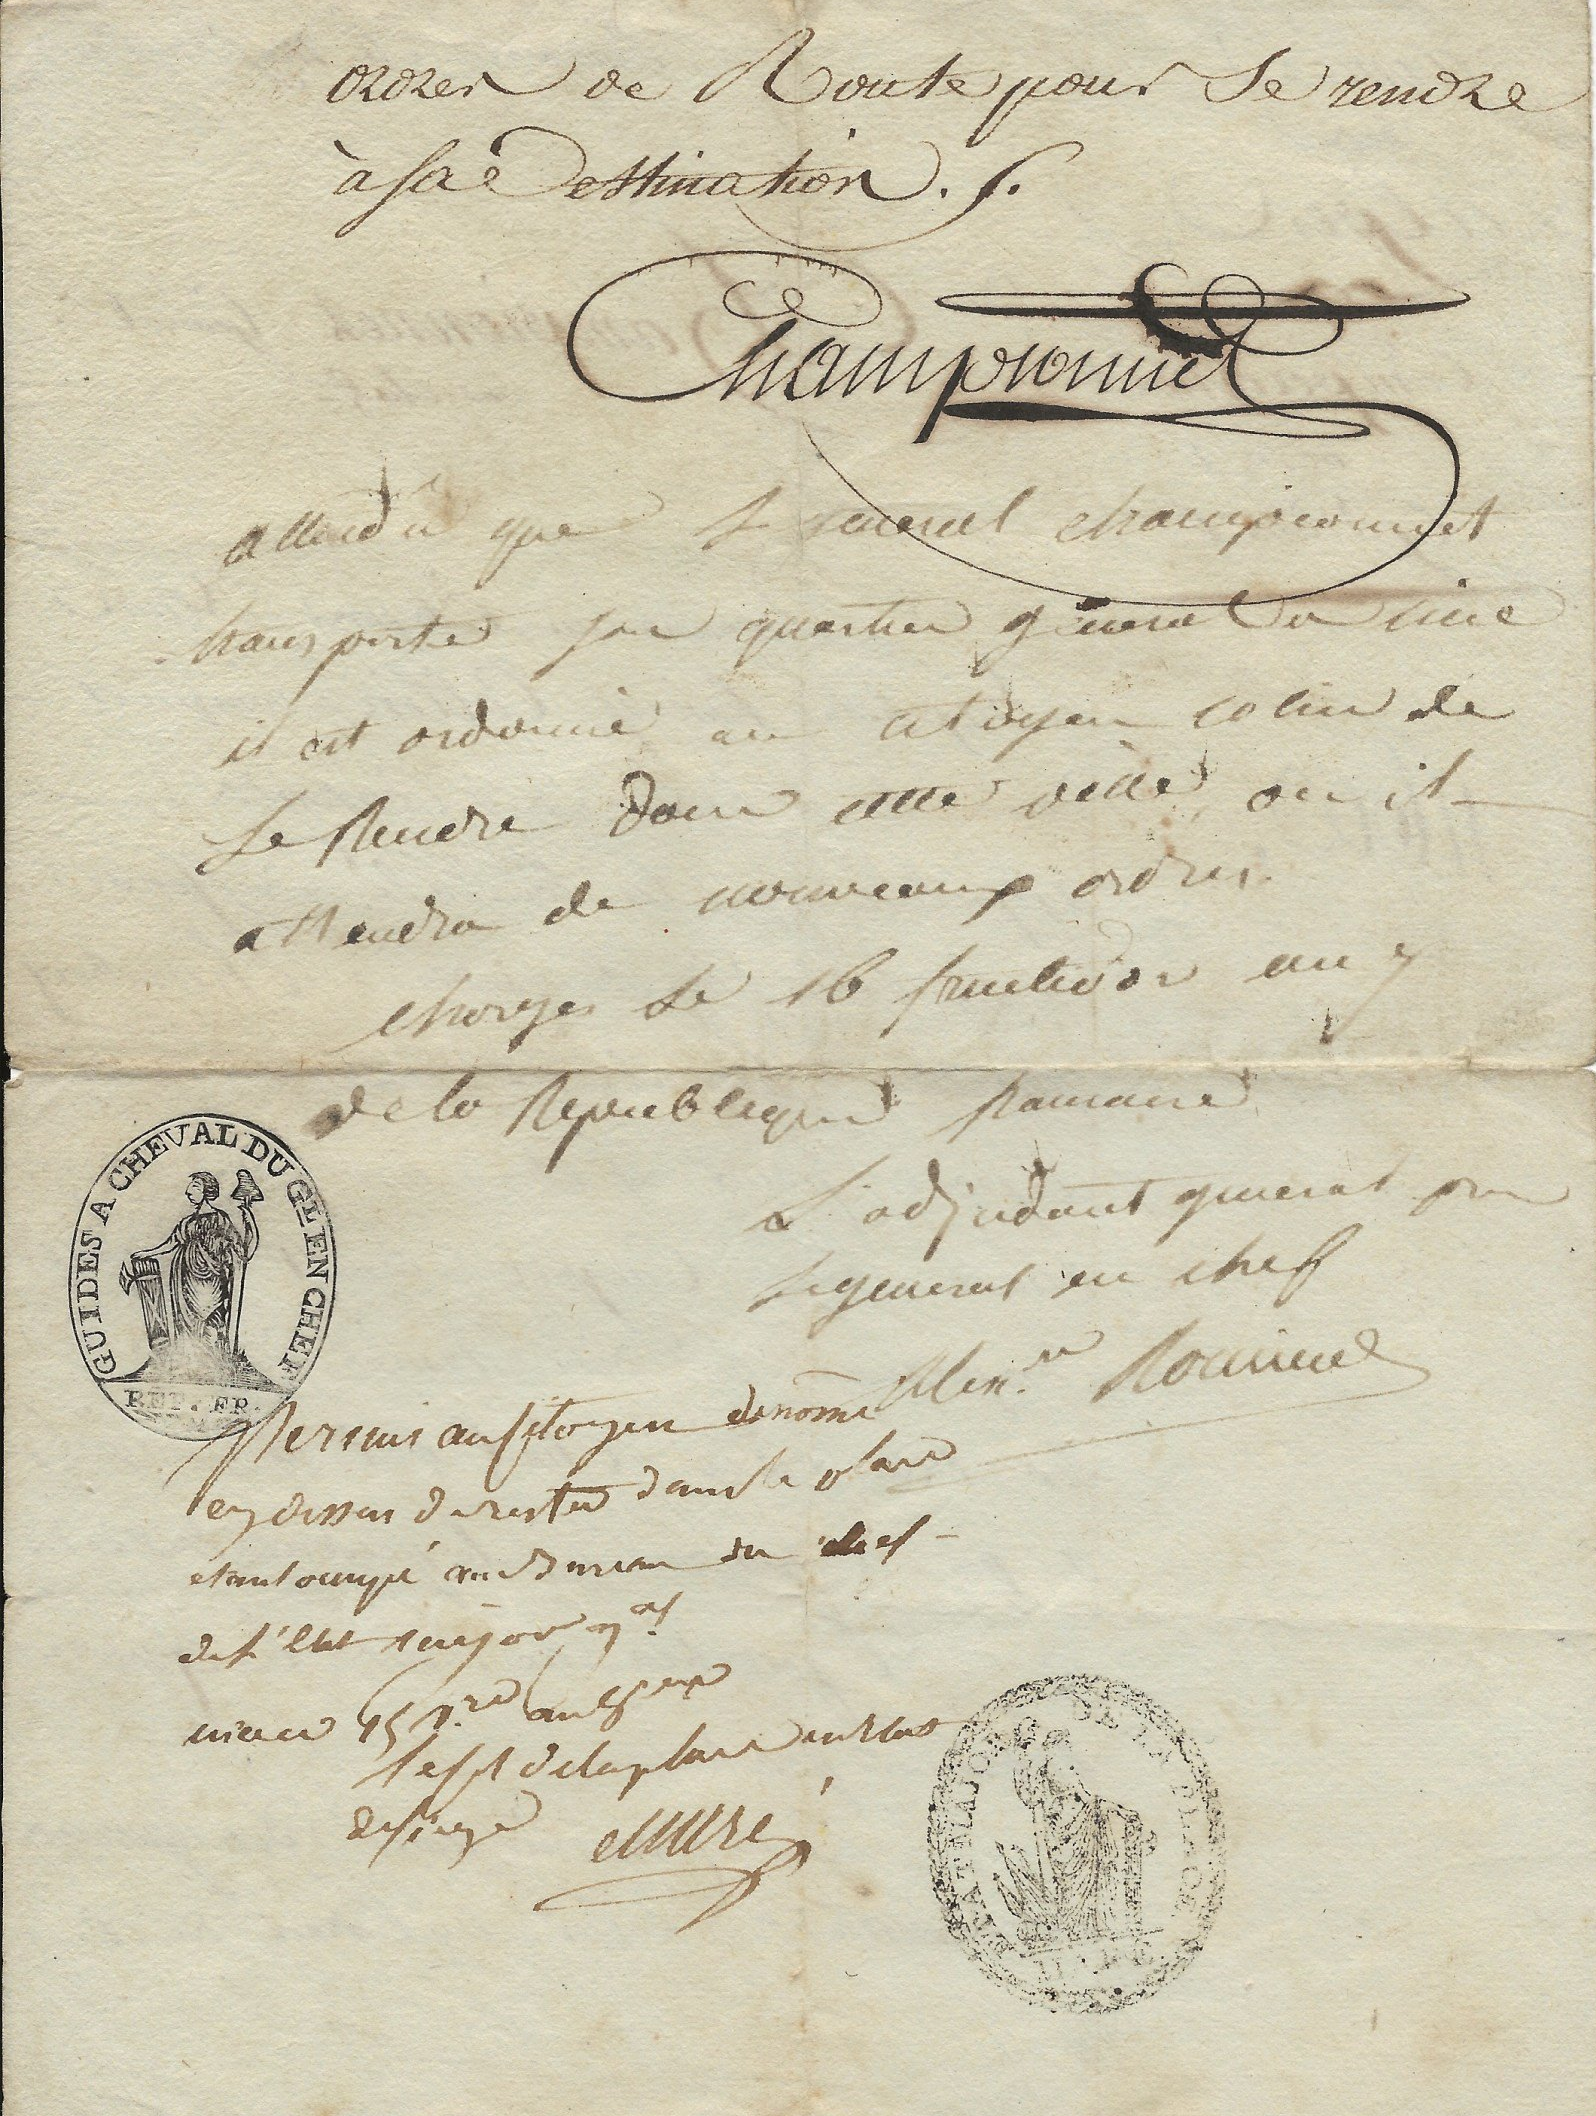 ordres de Route pour se rendre
à sa destination . /.
Championnet
attendu que le general championnet
transporte son quartier général a nice
il est ordonné au citoyen colin de
se Rendre dans cette ville ou il
attendra de nouveaux ordres.
chorges le 16 fructidor an 7
de la Republique
L'adjudant general pour
le general en chef
GUIDES A CHEVAL DU GL EN CHEF
REP. FR.
Permis au Citoyen denommé
cy dessus de rester dans la place
etant occupé au Bureau du chef
de l'Etat major gal
nice 15 an
de la place en Etat
de siege
ETAT MAJOR DE LA PLACE